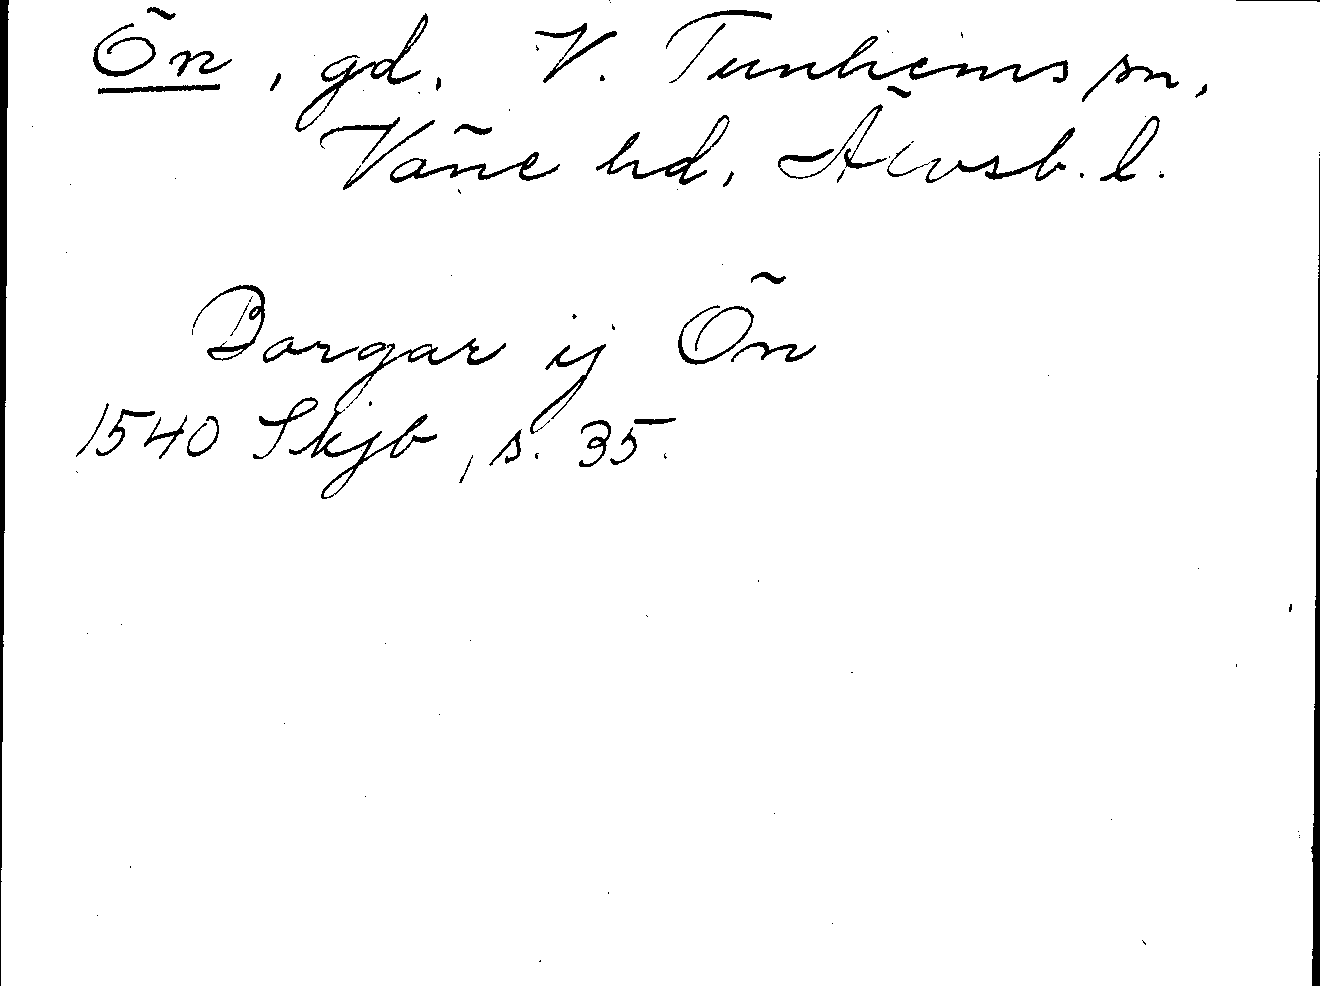 Ön, gd. V. Tunhems sn,
Väne hd, Älvsb. l.
Borgar ij Ön
1540 Skjb, s. 35.